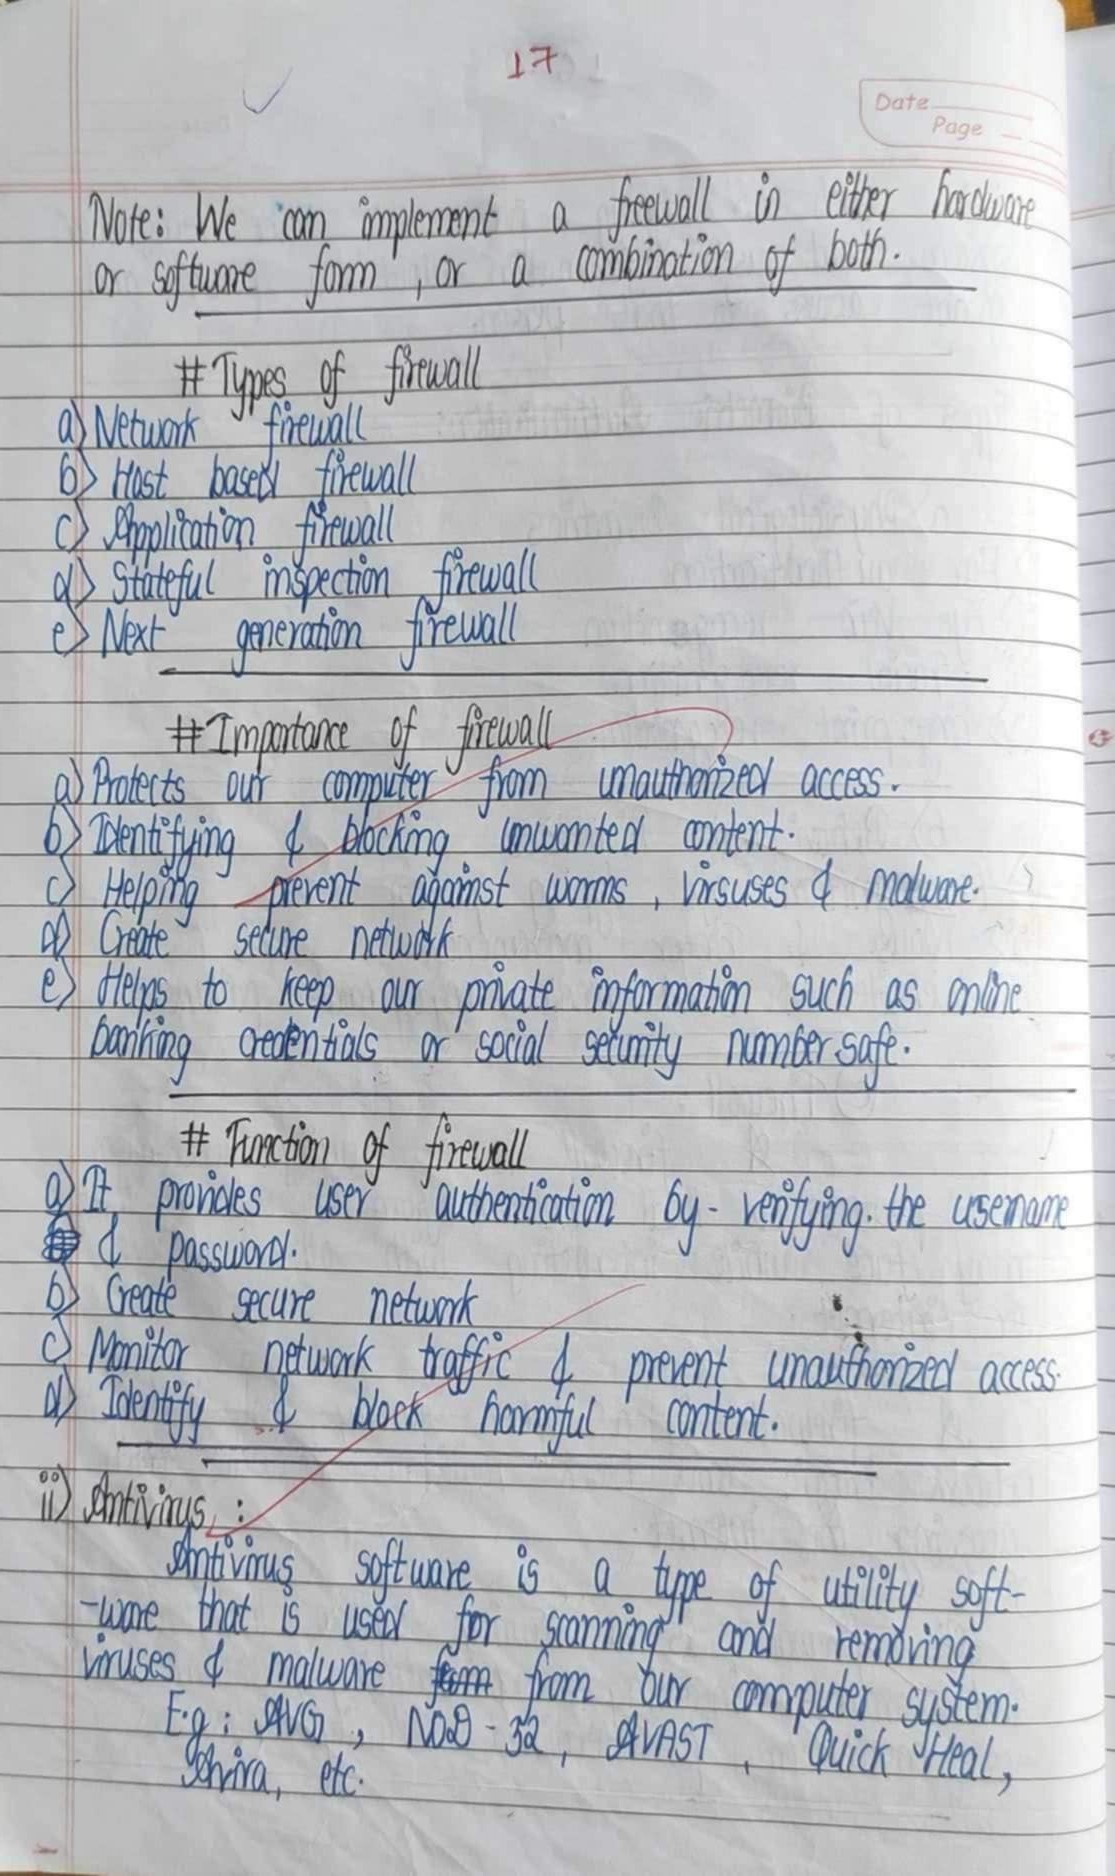 17
Date
Page
Note: We can implement a freewall in either hardware
or software form, or a combination of both.
# Types of firewall
a) Network firewall
b) Host based firewall
c) Application firewall
d) Stateful inspection firewall
e) Next generation firewall
# Importance of firewall
a) Protects our computer from unauthorized access.
b) Identifying & blocking unwanted content.
c) Helping prevent against worms, virsuses & malware.
d) Create secure network
e) Helps to keep our private information such as online
banking credentials or social security number safe.
# Function of firewall
a) It provides user authentication by - verifying. the username
& password.
b) Create secure network
c) Monitor network traffic & prevent unauthorized access.
d) Identify & block harmful content.
ii) Antivirus :
Antivirus software is a type of utility soft-
-ware that is used for scanning and removing
viruses & malware from our computer system.
E.g : AVG, NOD - 32, AVAST, Quick Heal,
Avira, etc.